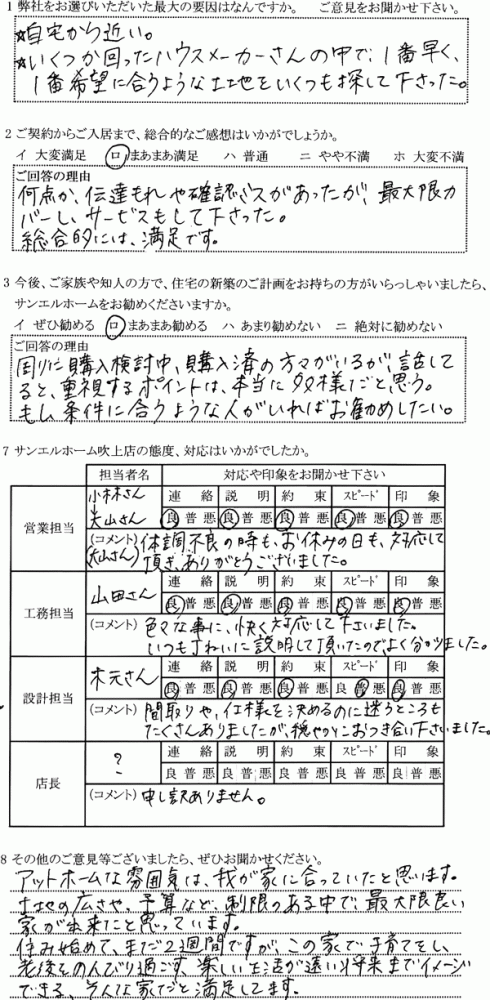 1 弊社をお選びいただいた最大の要因はなんですか。 ご意見をお聞かせ下さい。
☆自宅から近い。
☆いくつか回ったハウスメーカーさんの中で、1番早く、
1番希望に合うような土地をいくつも探して下さった。
2 ご契約からご入居まで、総合的なご感想はいかがでしょうか。
イ 大変満足 ロ まあまあ満足 ハ 普通 ニ やや不満 ホ 大変不満
ご回答の理由
何点か、伝達もれや確認ミスがあったが、最大限カ
バーし、サービスもして下さった。
総合的には、満足です。
3 今後、ご家族や知人の方で、住宅の新築のご計画をお持ちの方がいらっしゃいましたら、
サンエルホームをお勧めくださいますか。
イ ぜひ勧める ロ まあまあ勧める ハ あまり勧めない ニ 絶対に勧めない
ご回答の理由
周りに購入検討中、購入済の方々がいるが、話して
ると、重視するポイントは、本当に多様だと思う。
もし、条件に合うような人がいればお勧めしたい。
7 サンエルホーム吹上店の態度、対応はいかがでしたか。
担当者名 対応や印象をお聞かせ下さい
営業担当
小林さん
↓
大山さん
連絡 説明 約束 スピード 印象
良 普 悪 良 普 悪 良 普 悪 良 普 悪 良 普 悪
(コメント) 体調不良の時も、お休みの日も、対応して
(大山さん) 頂き、ありがとうございました。
工務担当
山田さん
連絡 説明 約束 スピード 印象
良 普 悪 良 普 悪 良 普 悪 良 普 悪 良 普 悪
(コメント) 色々な事に、快く対応して下さいました。
いつも丁ねいに説明して頂いたのでよく分かりました。
設計担当
木元さん
連絡 説明 約束 スピード 印象
良 普 悪 良 普 悪 良 普 悪 良 普 悪 良 普 悪
(コメント) 間取りや、仕様を決めるのに迷うところも
たくさんありましたが、穏やかにおつき合い下さいました。
店長
?
連絡 説明 約束 スピード 印象
良 普 悪 良 普 悪 良 普 悪 良 普 悪 良 普 悪
(コメント) 申し訳ありません。
8 その他のご意見等ございましたら、ぜひお聞かせください。
アットホームな雰囲気は、我が家に合っていたと思います。
土地の広さや、予算など、制限のある中で、最大限良い
家が出来たと思っています。
住み始めて、まだ2週間ですが、この家で子育てをし、
老後をのんびり過ごす、楽しい生活が遠い将来までイメージ
できる、そんな家だと満足してます。